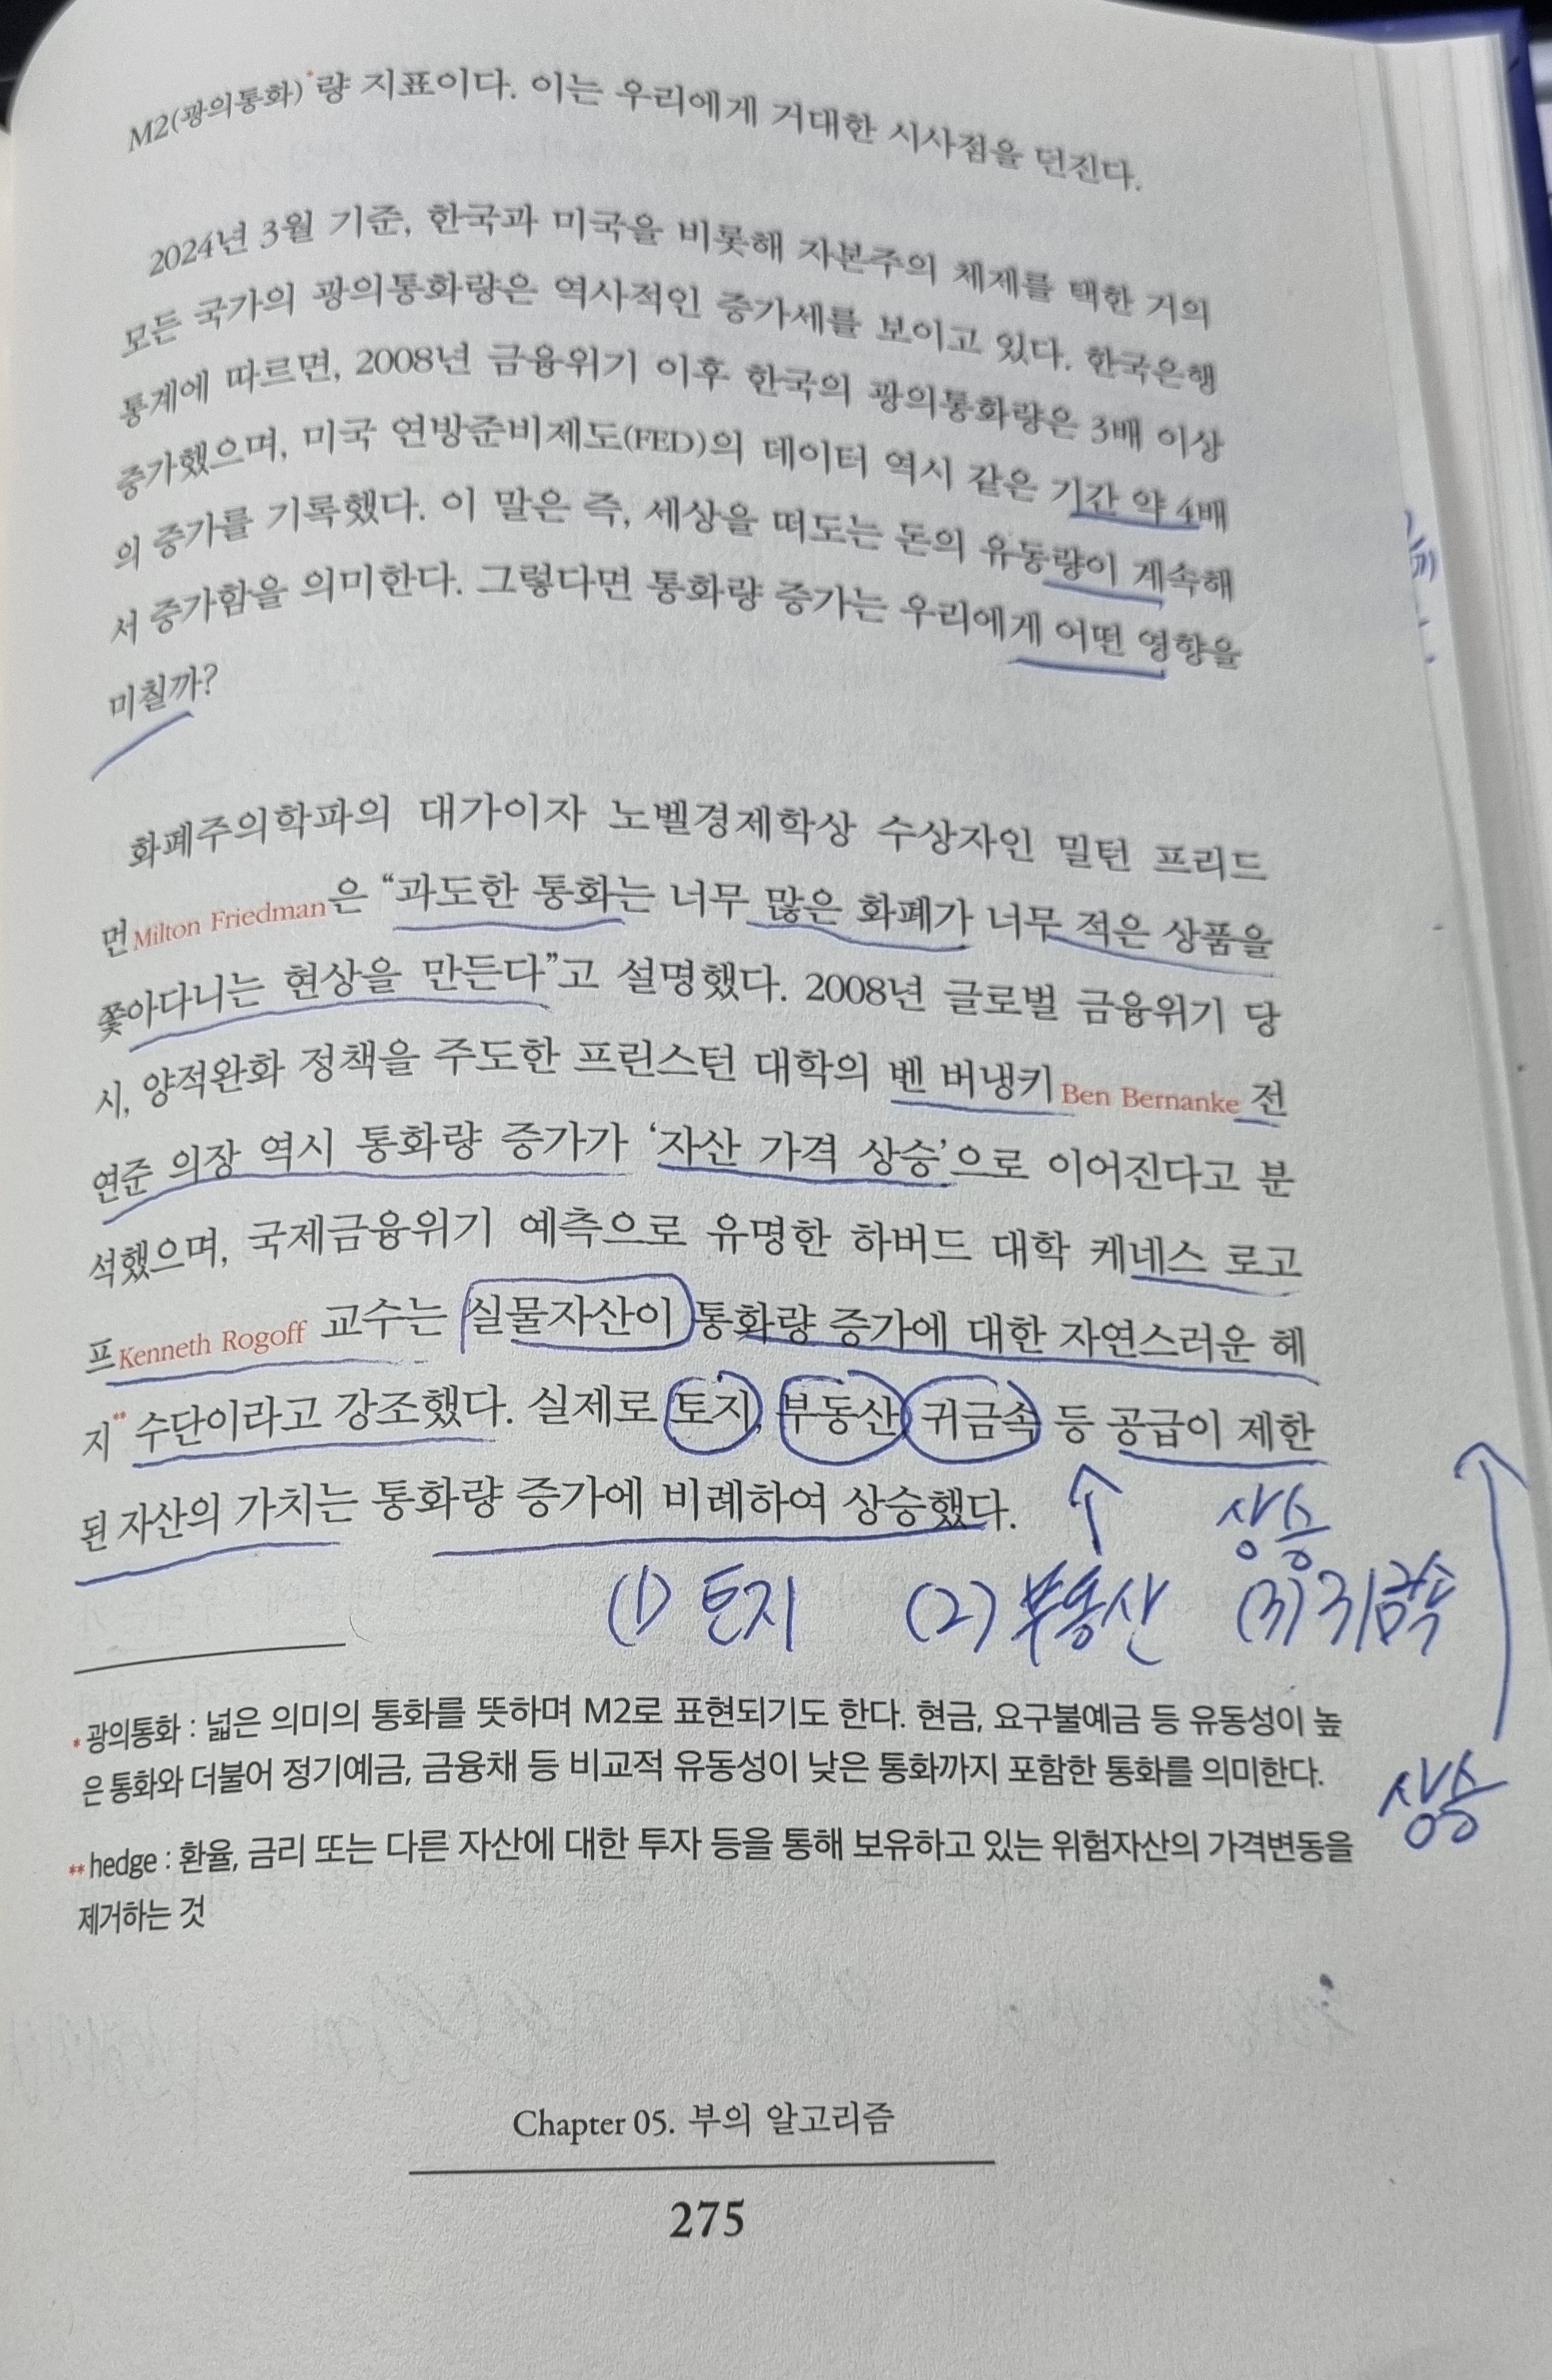 M2(광의통화)*량 지표이다. 이는 우리에게 거대한 시사점을 던진다.
2024년 3월 기준, 한국과 미국을 비롯해 자본주의 체제를 택한 거의
모든 국가의 광의통화량은 역사적인 증가세를 보이고 있다. 한국은행
통계에 따르면, 2008년 금융위기 이후 한국의 광의통화량은 3배 이상
증가했으며, 미국 연방준비제도(FED)의 데이터 역시 같은 기간 약 4배
의 증가를 기록했다. 이 말은 즉, 세상을 떠도는 돈의 유동량이 계속해
서 증가함을 의미한다. 그렇다면 통화량 증가는 우리에게 어떤 영향을
미칠까?
화폐주의학파의 대가이자 노벨경제학상 수상자인 밀턴 프리드
먼Milton Friedman은 “과도한 통화는 너무 많은 화폐가 너무 적은 상품을
쫓아다니는 현상을 만든다”고 설명했다. 2008년 글로벌 금융위기 당
시, 양적완화 정책을 주도한 프린스턴 대학의 벤 버냉키Ben Bernanke 전
연준 의장 역시 통화량 증가가 ‘자산 가격 상승’으로 이어진다고 분
석했으며, 국제금융위기 예측으로 유명한 하버드 대학 케네스 로고
프Kenneth Rogoff 교수는 실물자산이 통화량 증가에 대한 자연스러운 헤
지** 수단이라고 강조했다. 실제로 토지, 부동산, 귀금속 등 공급이 제한
된 자산의 가치는 통화량 증가에 비례하여 상승했다.
상승
(1) 토지 (2) 부동산 (3) 귀금속
상승
* 광의통화 : 넓은 의미의 통화를 뜻하며 M2로 표현되기도 한다. 현금, 요구불예금 등 유동성이 높
은 통화와 더불어 정기예금, 금융채 등 비교적 유동성이 낮은 통화까지 포함한 통화를 의미한다.
** hedge : 환율, 금리 또는 다른 자산에 대한 투자 등을 통해 보유하고 있는 위험자산의 가격변동을
제거하는 것
Chapter 05. 부의 알고리즘
275